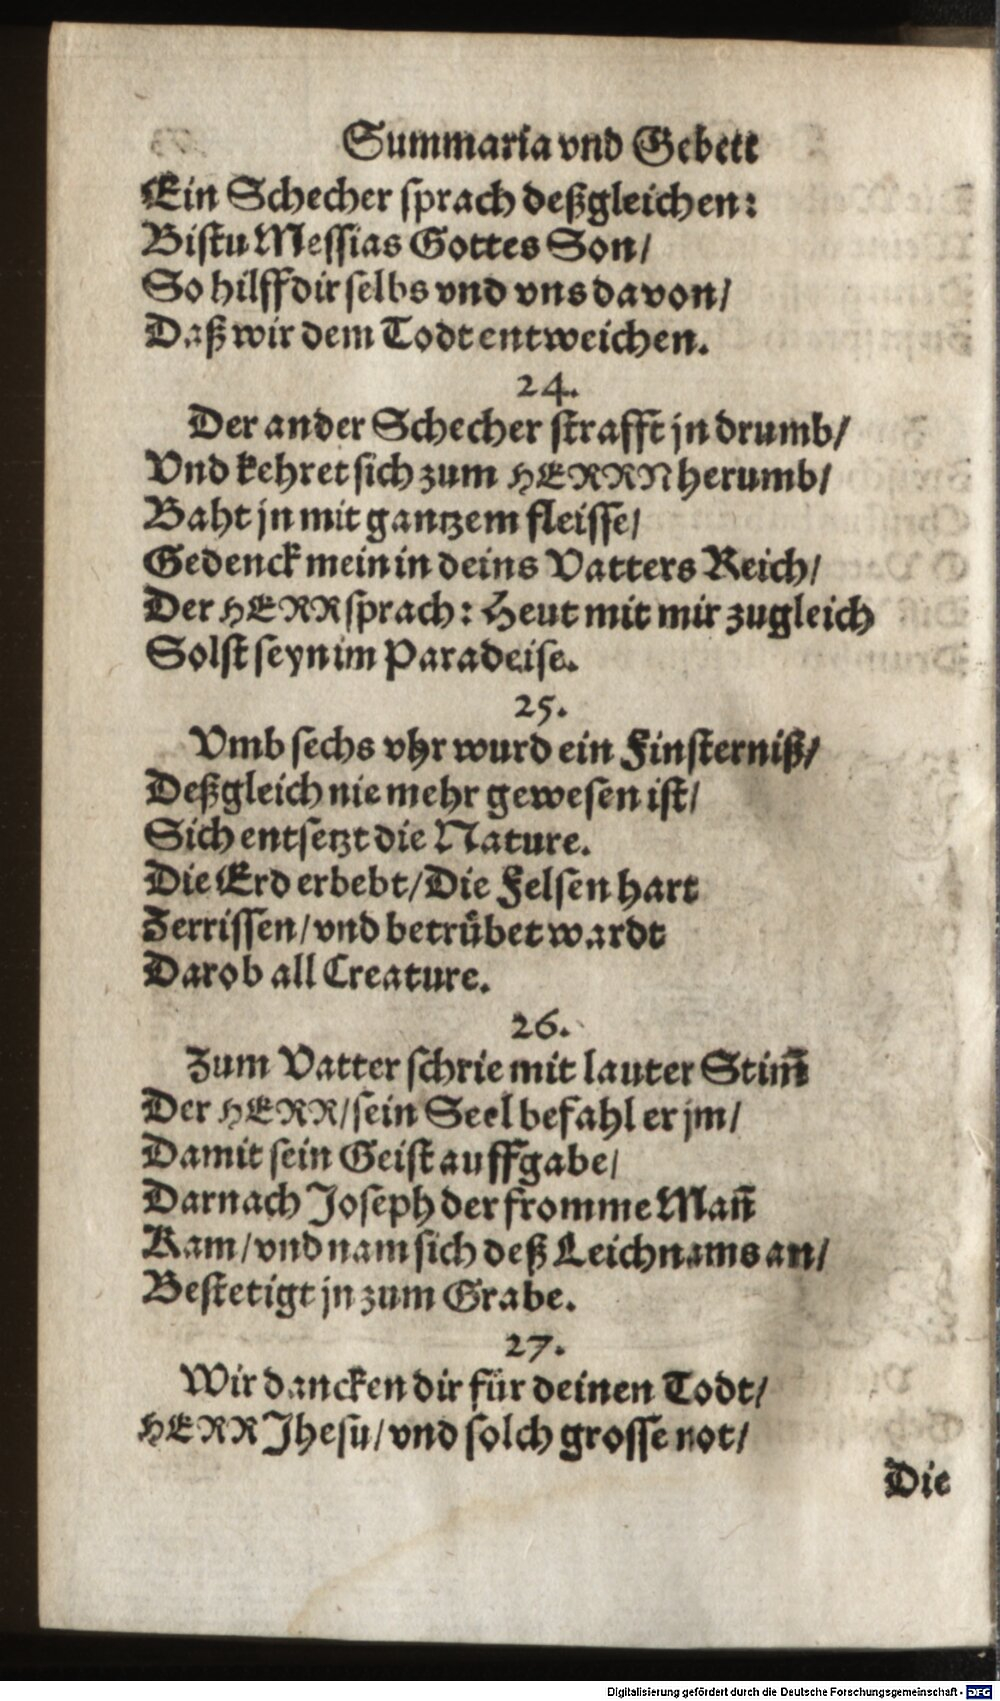 Summaria vnd Gebett
Ein Schecher sprach deßgleichen:
Bistu Messias Gottes Son/
So hilff dir selbs vnd vns davon/
Daß wir dem Todt entweichen.
24.
Der ander Schecher strafft jn drumb/
Vnd kehret sich zum HERRN herumb/
Baht jn mit gantzem fleisse/
Gedenck mein in deins Vatters Reich/
Der HERR sprach: Heut mit mir zugleich
Solst seyn im Paradeise.
25.
Vmb sechs vhr wurd ein Finsterniß/
Deßgleich nie mehr gewesen ist/
Sich entsetzt die Nature.
Die Erd erbebt/Die Felsen hart
Zerrissen/vnd betrübet wardt
Darob all Creature.
26.
Zum Vatter schrie mit lauter Stim̃
Der HERR/sein Seel befahl er jm/
Damit sein Geist auffgabe/
Darnach Joseph der fromme Mañ
Kam/vnd nam sich deß Leichnams an/
Bestetigt jn zum Grabe.
27.
Wir dancken dir für deinen Todt/
HERR Jhesu/vnd solch grosse not/
Die
Digitalisierung gefördert durch die Deutsche Forschungsgemeinschaft - DFG